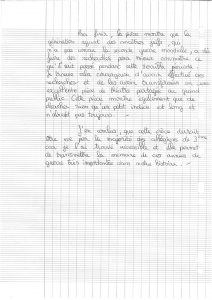 Pour finir, la pièce montre que la
génération ayant des ancêtres juifs, qui
n'a pas vécu la seconde guerre mondiale, a dû
faire des recherches pour mieux connaître ce
qu'il s'est passé pendant cette terrible période.
Je trouve cela courageux d'avoir effectué ces
recherches et de les avoir transformées en une
excellente pièce de théâtre partagée au grand
public. Cette pièce montre également que de
chercher rien qu'un petit indice est long et
n'aboutit pas toujours.
J'en conclus que cette pièce devrait
être vue par la majorité des collégiens de 3ème
car je l'ai trouvé accessible et elle permet
de transmettre la mémoire de ces années de
guerre très importantes dans notre histoire.